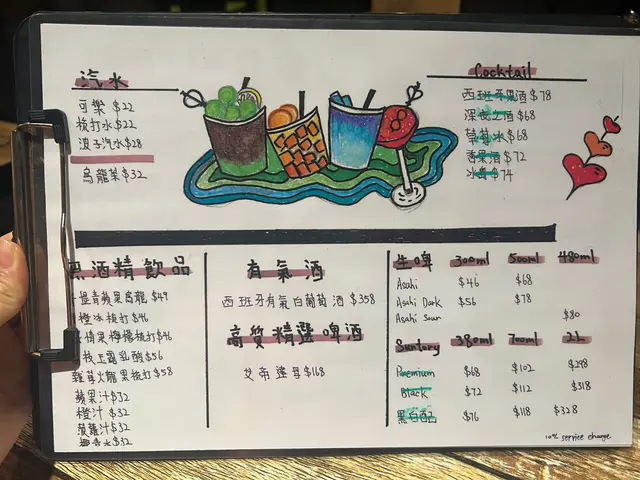 汽水
可樂 $22
梳打水 $22
波子汽水 $28
烏龍茶 $32
Cocktail
西班牙果酒 $78
深夜之酒 $68
草莓冰 $68
香果酒 $72
$74
酒精飲品
提青蘋果烏龍 $49
橙冰梳打 $46
情果檸檬梳打 $46
玉露乳酸 $56
莓火龍果梳打 $58
蘋果汁 $32
橙汁 $32
菠蘿汁 $32
椰青水 $32
有氣酒
西班牙有氣白葡萄酒 $358
高質精選啤酒
$168
生啤 300ml 500ml 480ml
Asahi $46 $68
Asahi Dark $56 $78
Asahi Sour $80
Suntory 380ml 700ml 2L
Premium $68 $102 $298
Black $72 $112 $318
黑白配 $76 $118 $328
10% service charge